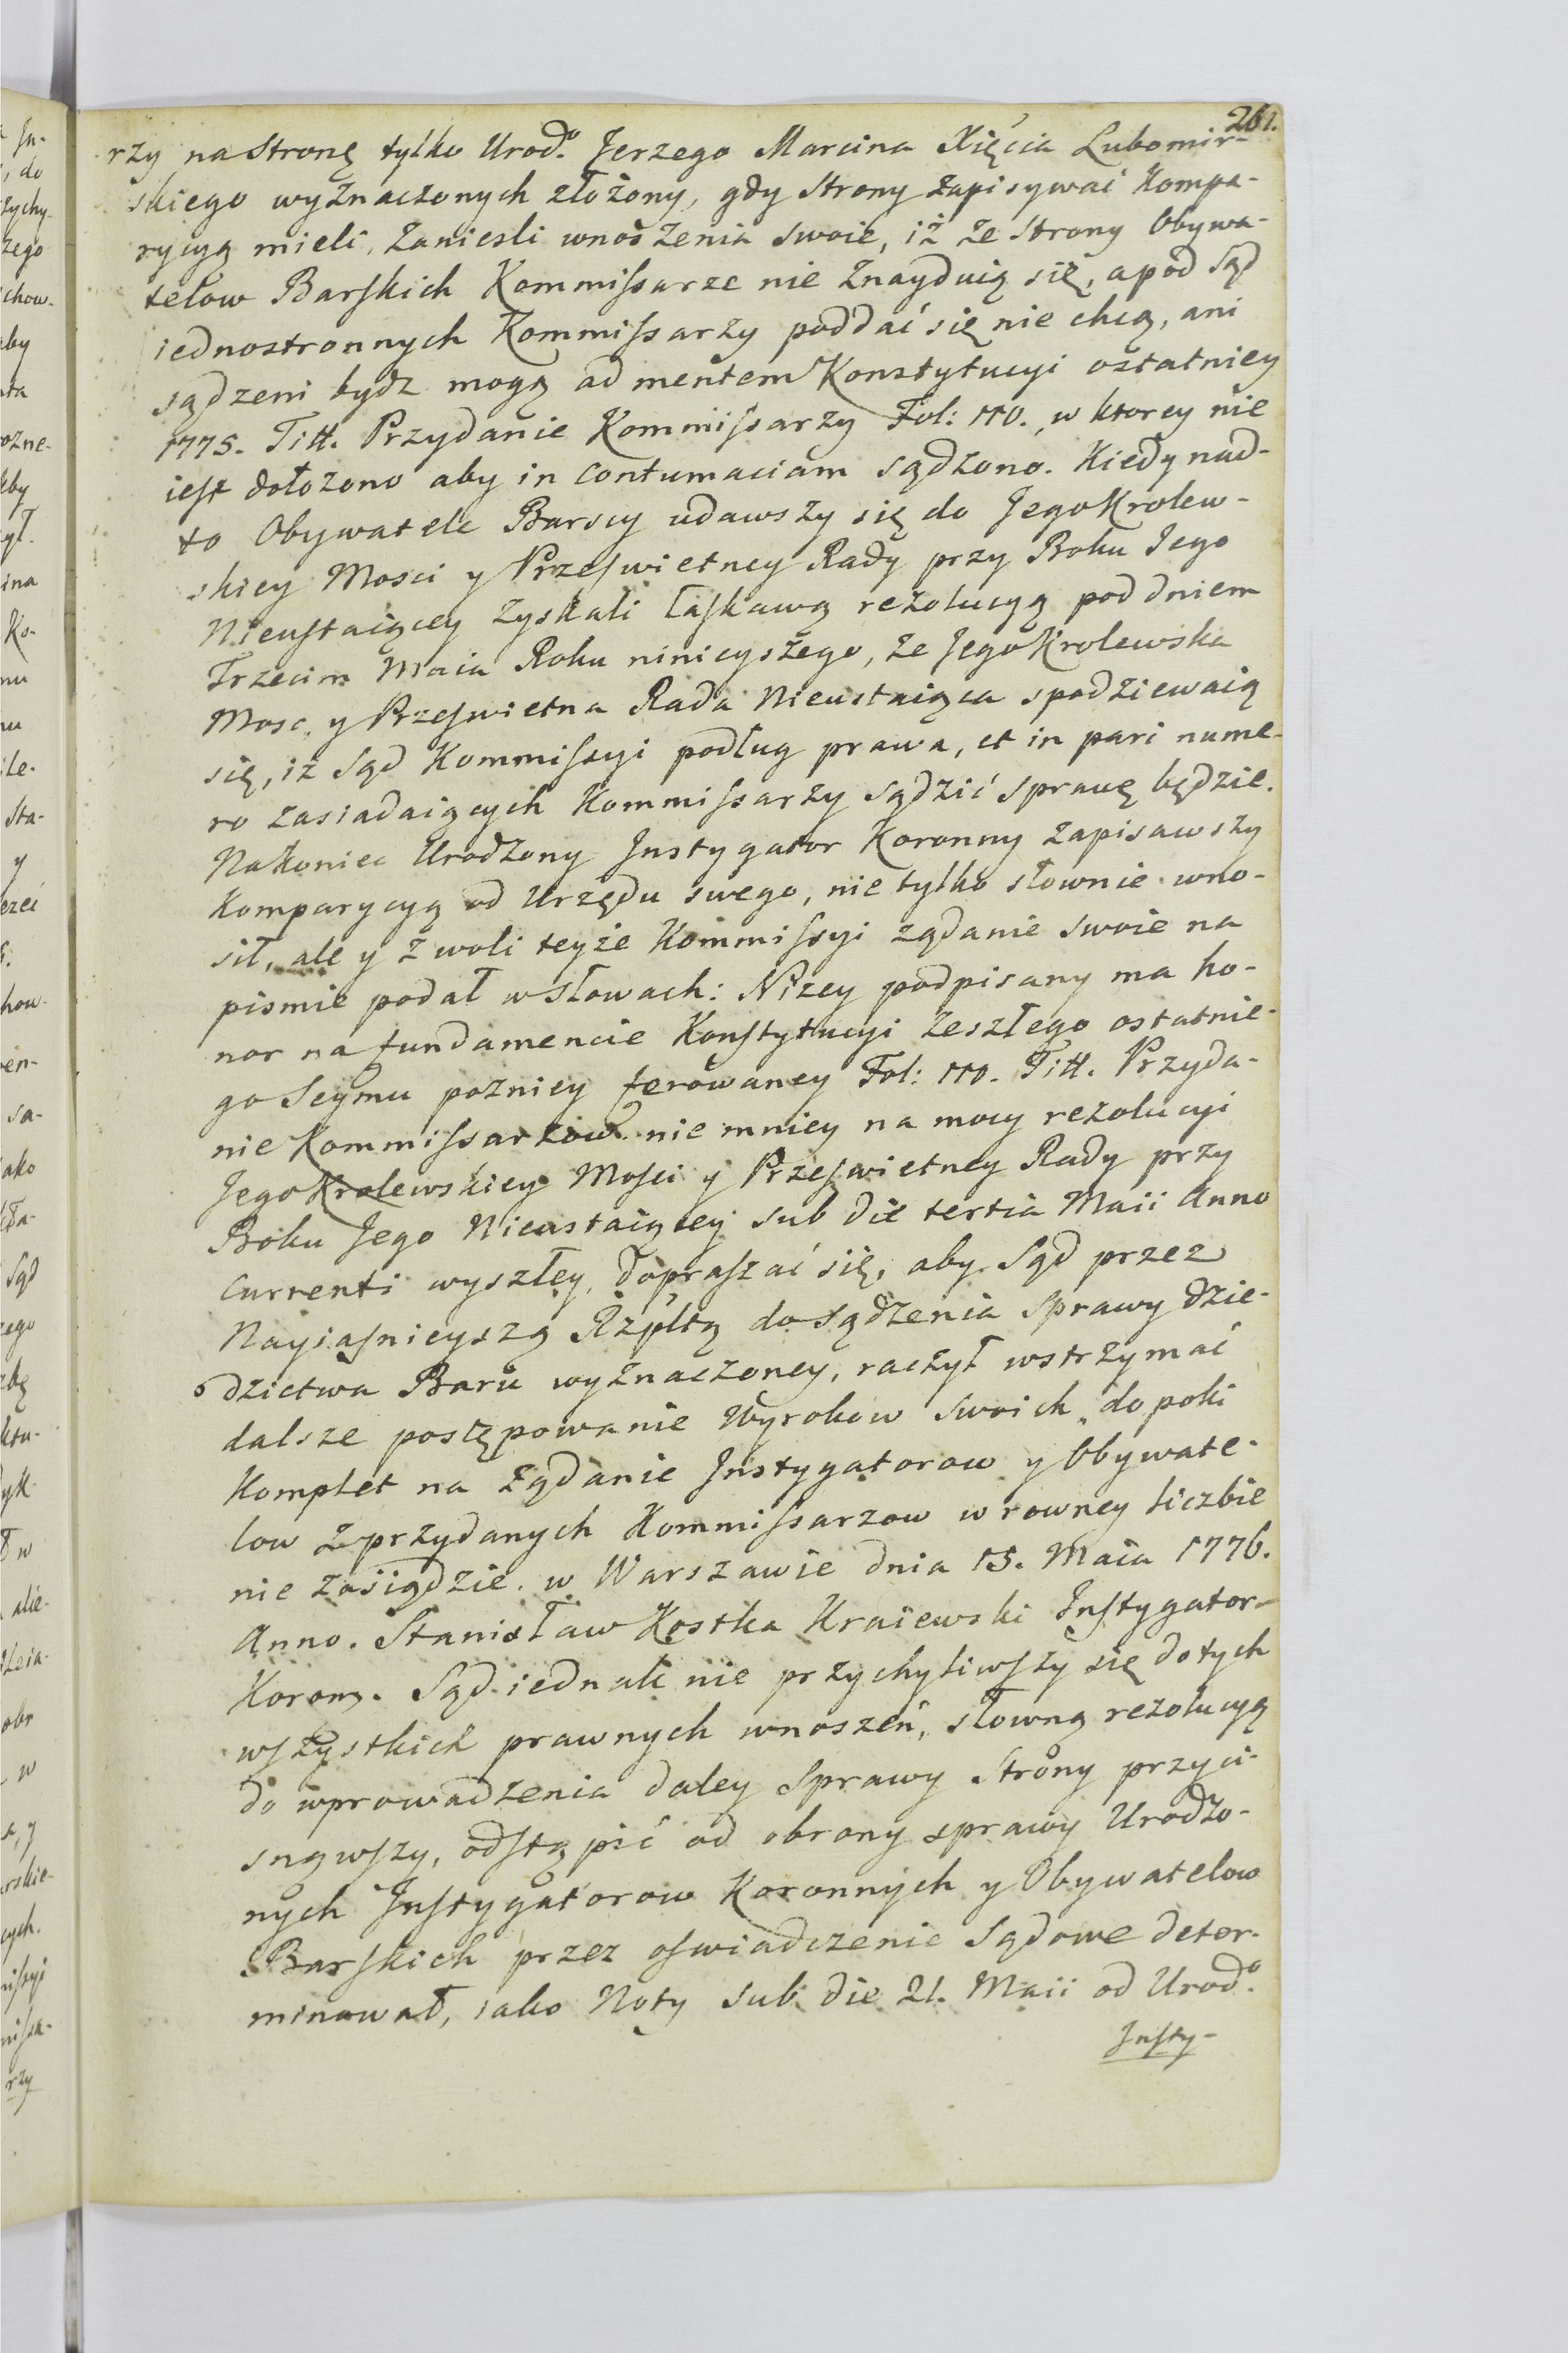 261.
rzy na Stronę tylko Urodº. Jerzego Marcina Xięcia Lubomir-
skiego wyznaczonych złożony, gdy Strony zapisywać Kompa-
rycyą mieli, zaniesli wnoszenia swoie, iż ze Strony Obywa-
telow Barskich Kommissarze nie znayduią się, a pod Sąd
iednostronnych Kommissarzy poddać się nie chcą, ani
sądzeni bydz mogą ad mentem Konstytucyi ostatniey
1775. Titt. Przydanie Kommissarzy Fol: 110., w ktorey nie
iest dołozono aby in contumaciam sądzono. Kiedy nad-
to Obywatele Barscy udawszy się do Jego Krolew-
skiey Mosci y Przeswietney Rady przy Boku Jego
Nieustaiącey zyskali łaskawą rezolucyą pod dniem
Trzecim Maia Roku ninieyszego, ze Jego Krolewska
Mosc, y Przeswietna Rada Nieustaiąca spodziewaią
się, iż Sąd Kommissyi podług prawa, et in pari nume-
ro zasiadaiących Kommissarzy sądzić sprawę będzie.
Nakoniec Urodzony Instygator Koronny zapisawszy
Komparycyą od Urzędu swego, nie tylko słownie wno-
sił, ale y z woli teyże Kommissyi ządanie swoie na
pismie podał w słowach: Nizey podpisany ma ho-
nor na fundamencie Konstytucyi zeszłego ostatnie-
go Seymu pozniey ferowaney Fol: 110. Titt. Przyda-
nie Kommissarzow. nie mniey na mocy rezolucyi
Jego Krolewskiey Mosci y Przeswietney Rady przy
Boku Jego Nieustaiącey sub die tertia Maii Anno
currenti wyszłey, dopraszać się, aby Sąd przez
Nayiasnieyszą Rzpltą do sądzenia sprawy dzie-
dzictwa Baru wyznaczoney, raczył wstrzymać
dalsze postępowanie Wyrokow swoich, do poki
Komplet na żądanie Instygatorow y Obywate-
low z przydanych Kommissarzow w rowney liczbie
nie zasiądzie. w Warszawie dnia 15. Maia 1776.
Anno. Stanisław Kostka Kraiewski Instygator
Koronn. Sąd iednak nie przychyliwszy się do tych
wszystkich prawnych wnoszeń, słowną rezolucyą
do wprowadzenia daley Sprawy Strony przyci-
snąwszy, odstąpić od obrony sprawy Urodzo-
nych Instygatorow Koronnych y Obywatelow
Barskich przez oswiadczenie Sądowe deter-
minował, iako Noty sub die 21. Maii od Urodº.
Insty-